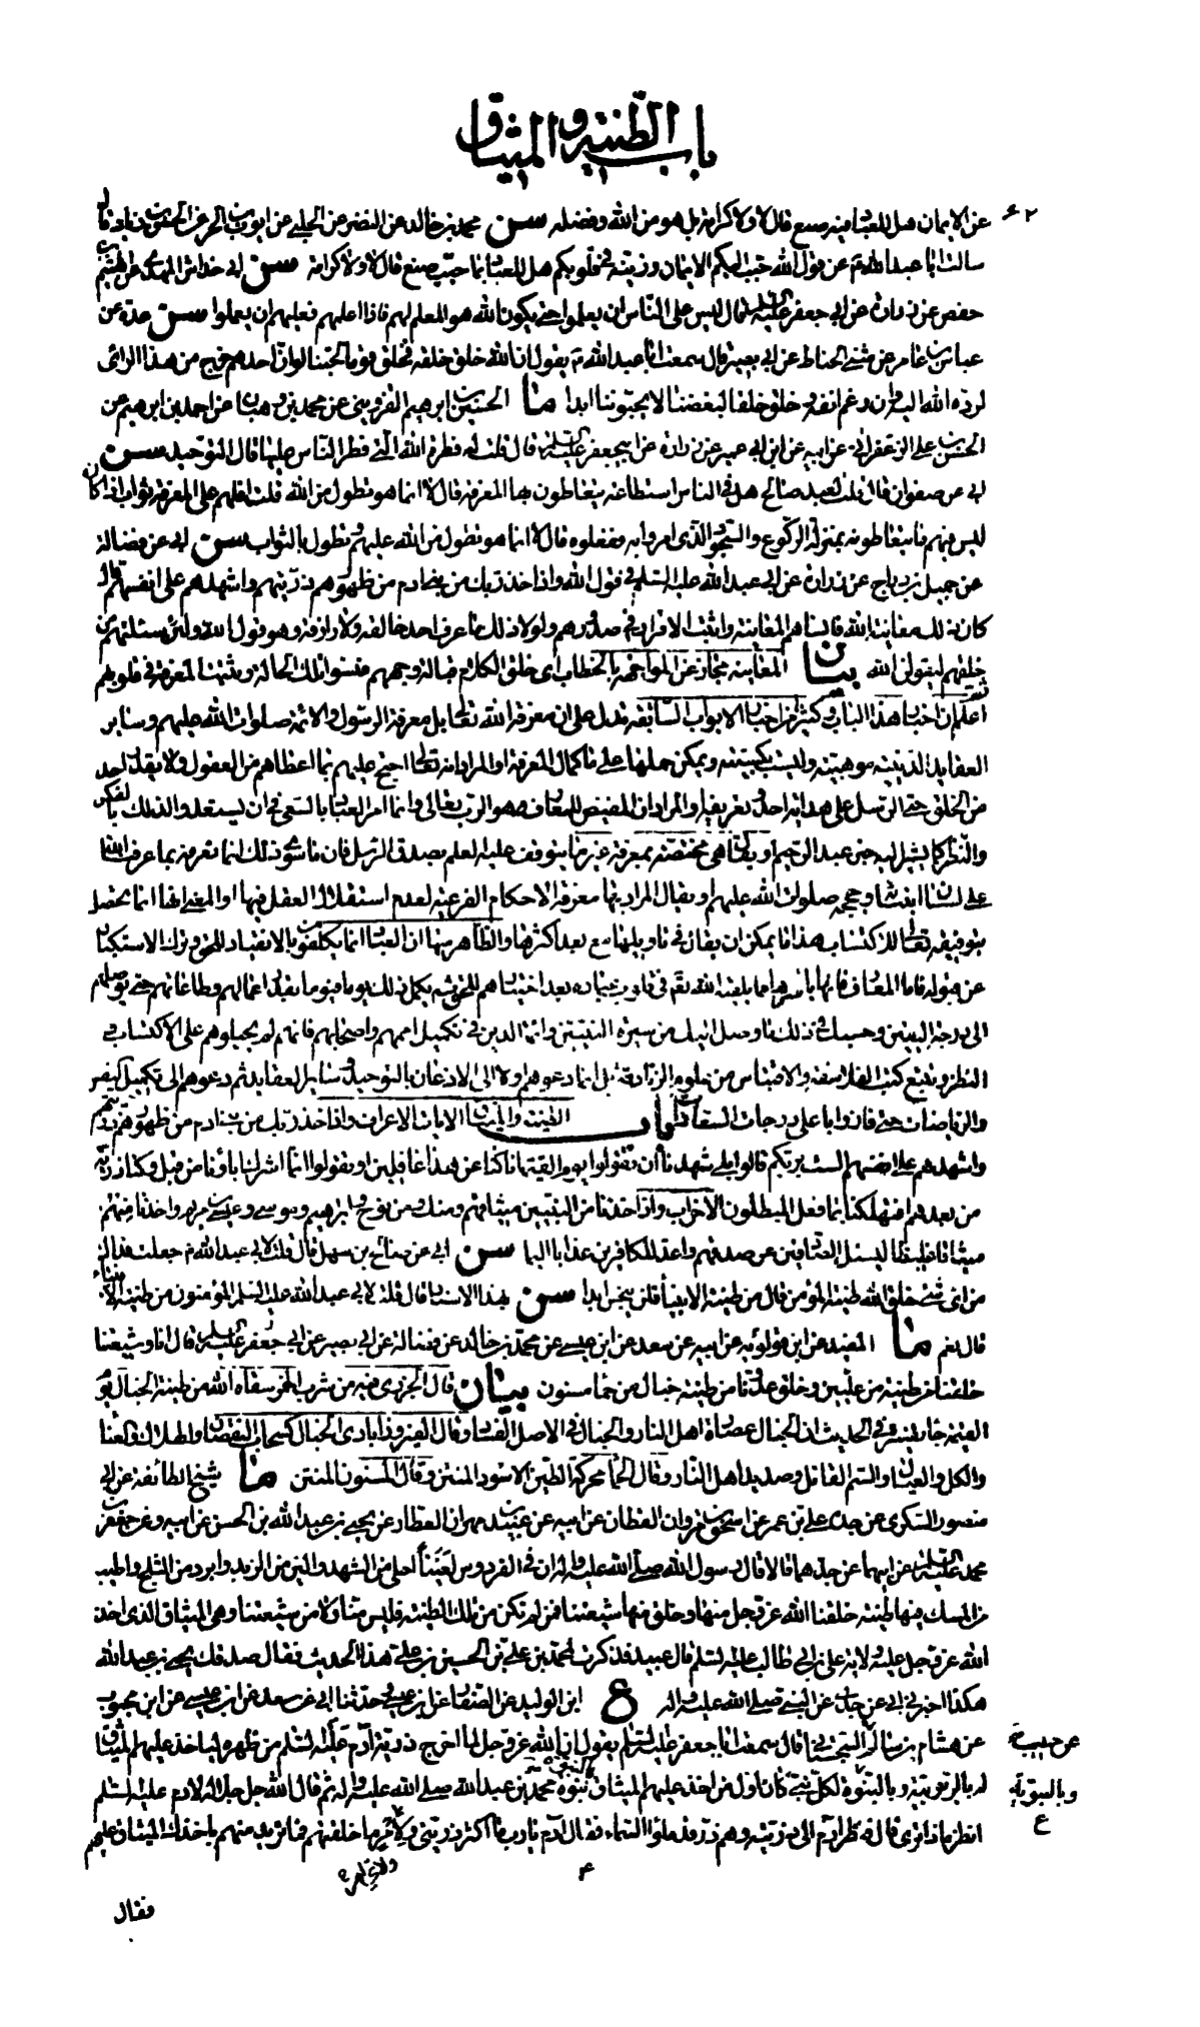 باب الطينة والميثاق
عن الايمان هل للعباد فيه صنع قال لا ولا كرامة بل هو من الله وفضله سن محمد بن خالد عن النضر عن الحلبي عن ايوب بن الحر عن الحسن بن زياد قال
سالت ابا عبد الله ع عن قول الله حبب اليكم الايمان وزينه في قلوبكم هل للعباد بما حبب صنع قال لا ولا كرامة سن ابي خداش المهدي عن الهيثم بن
حفص عن زرارة عن ابي جعفر عليه السلام قال ليس على الناس ان يعلموا حتى يكون الله هو المعلم لهم فاذا اعلمهم فعليهم ان يعلموا سن عدة عن
عباس بن عامر عن مثنى الحناط عن ابي بصير قال سمعت ابا عبد الله ع يقول ان الله خلق خلقه فخلق قوما لحبنا لو ان احدهم خرج من هذا الراى
لرده الله اليه وان رغم انفه وخلق خلقا لبغضنا لا يحبوننا ابدا ما الحسين بن ابرهيم القزويني عن محمد بن وهبان عن احمد بن ابرهيم عن
الحسن بن علي الزعفراني عن ابيه عن ابن ابي عمير عن زرارة عن ابيجعفر عليه السلام قال قلت له فطرة الله التي فطر الناس عليها قال التوحيد سن
ابي عن صفوان قال قلت لعبد صالح هل في الناس استطاعة يتعاطون بها المعرفة قال لا انما هو تطول من الله قلت افلهم على المعرفة ثواب اذا كان
ليس فيهم ما يتعاطونه بمنزلة الركوع والسجود الذى امروا به ففعلوه قال لا انما هو تطول من الله عليهم وتطول بالثواب سن ابي عن فضالة
عن جميل بن دراج عن زرارة عن ابي عبد الله عليه السلم في قول الله واذ اخذ ربك من بني ادم من ظهورهم ذريتهم واشهدهم على انفسهم قال
كان ذلك معاينة الله فانساهم المعاينة واثبت الاقرار في صدورهم ولولا ذلك ما عرف احد خالقه ولا رازقه وهو قول الله ولئن سئلتهم من
خلقهم ليقولن الله بيان المعاينة مجاز عن المواجهة بالخطاب اى خلق الكلام قبالة وجههم فنسوا تلك الحالة وثبتت المعرفة في قلوبهم
اعلم ان اخبار هذا الباب وكثير من اخبار الابواب السابقة تدل على ان معرفة الله تعالى بل معرفة الرسول والائمة صلوات الله عليهم وساير
العقايد الدينية موهبية وليست بكسبية ويمكن حملها على كمال المعرفة او المراد انه تعالى احتج عليهم بما اعطاهم من العقول ولا يقدر احد
من الخلق حتى الرسل على هداية احد وتعريفه او المراد ان المفيض للمعارف هو الرب تعالى وانما امر العباد بالسعى في ان يستعدوا لذلك بالفكر
والنظر كما يشير اليه خبر عبد الرحيم او يقال هي مختصة بمعرفة غير ما يتوقف عليه العلم بصدق الرسل فان ما سوى ذلك انما نعرفه بما عرفنا الله
على لسان انبيائه وحججه صلوات الله عليهم او يقال المراد بها معرفة الاحكام الفرعية لعدم استقلال العقل فيها او المعنى انها انما يحصل
بتوفيقه تعالى للاكتساب هذا ما يمكن ان يقال في تاويلها مع بعد اكثرها والظاهر منها ان العباد انما يكلفون بالانقياد للحق وترك الاستكبار
عن قبوله فاما المعارف فانها باسرها مما يلقيه الله تعالى في قلوب عباده بعد اختيارهم للحق ثم يكمل ذلك يوما فيوما بقدر اعمالهم وطاعاتهم حتى يوصلهم
الى درجة اليقين وحسبك في ذلك ما وصل اليك من سيرة النبيين وائمة الدين في تكميل اممهم واصحابهم فانهم لم يحيلوهم على الاكتساب
النظر وتتبع كتب الفلاسفة والاقتباس من علوم الزنادقة بل انما دعوهم اولا الى الاذعان بالتوحيد وساير العقايد ثم دعوهم الى تكميل النفس
والرياضات حتى فازوا باعلى درجات السعادات باب الطينة والميثاق الايات الاعراف واذ اخذ ربك من بني ادم من ظهورهم ذريتهم
واشهدهم على انفسهم الست بربكم قالوا بلى شهدنا ان تقولوا يوم القيمة انا كنا عن هذا غافلين او يقولوا انما اشرك اباؤنا من قبل وكنا ذرية
من بعدهم افتهلكنا بما فعل المبطلون الاحزاب واذ اخذنا من النبيين ميثاقهم ومنك ومن نوح وابرهيم وموسى وعيسى بن مريم واخذنا منهم
ميثاقا غليظا ليسئل الصادقين عن صدقهم واعد للكافرين عذابا اليما سن ابي عن صالح بن سهل قال قلت لابي عبد الله ع جعلت فداك
من اى شئ خلق الله طينة المؤمن قال من طينة الانبياء فلن ينجس ابدا سن بهذا الاسناد قال قلت لابي عبد الله عليه السلم المؤمنون من طينة الانبياء
قال نعم ما المفيد عن ابن قولويه عن ابيه عن سعد عن ابن عيسى عن محمد بن خالد عن فضالة عن ابي بصير عن ابي جعفر عليه السلم قال انا وشيعتنا
خلقنا من طينة من عليين وخلق عدونا من طينة خبال من حما مسنون بيان قال الجزرى فيه من شرب الخمر سقاه الله من طينة الخبال يوم
القيمة جاء تفسيره في الحديث ان الخبال عصارة اهل النار والخبال في الاصل الفساد وقال الفيروزابادى الخبال كسحاب النقصان والهلاك والعناء
والكل والعيال والسم القاتل وصديد اهل النار وقال الحما محركة الطين الاسود المنتن وقال المسنون المنتن ما شيخ الطائفة عن ابي
منصور السكرى عن جده علي بن عمر عن اسحق بن مروان القطان عن ابيه عن عبيد بن مهران العطار عن يحيى بن عبد الله بن الحسن عن ابيه وعن جعفر بن
محمد عليه السلام عن ابيهما عن جدهما قالا قال رسول الله صلى الله عليه واله ان في الفردوس لعينا احلى من الشهد والين من الزبد وابرد من الثلج واطيب
من المسك فيها طينة خلقنا الله عز وجل منها وخلق منها شيعتنا فمن لم تكن من تلك الطينة فليس منا ولا من شيعتنا وهي الميثاق الذى اخذ
الله عز وجل عليه ولاية علي بن ابي طالب عليه السلم قال عبيد فذكرت لمحمد بن علي بن الحسين بن علي هذا الحديث فقال صدقك يحيى بن عبد الله
هكذا اخبرني ابي عن جدي عن النبي صلى الله عليه واله ع ابن الوليد عن الصفار عن ابن عيسى وحدثنا ابي عن سعد عن ابن عيسى عن ابن محبوب
عن هشام بن سالم السجستاني قال سمعت ابا جعفر عليه السلم يقول ان الله عز وجل لما اخرج ذرية آدم عليه السلم من ظهره لياخذ عليهم الميثاق
عن حبيب
له بالربوبية وبالنبوة لكل نبي كان اول من اخذ عليهم الميثاق نبوة محمد بن عبد الله صلى الله عليه واله ثم قال الله جل جلاله لادم عليه السلم
وبالنبوة
ع
انظر ماذا ترى قال فنظر ادم الى ذريته وهم ذر قد ملؤا السماء فقال آدم يا رب ما اكثر ذريتي ولامر ما خلقتهم فما تريد منهم باخذك الميثاق عليهم
فقال